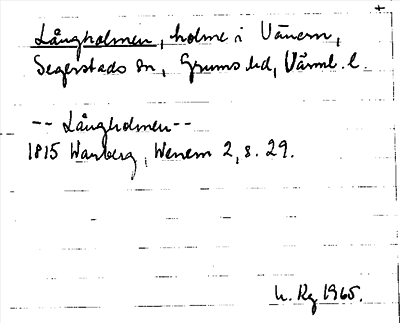 Långholmen, holme i Vänern,
Segerstads sn, Grums hd, Värml. l.
-- Långholmen --
1815 Warberg, Wenern 2, s. 29.
1965.